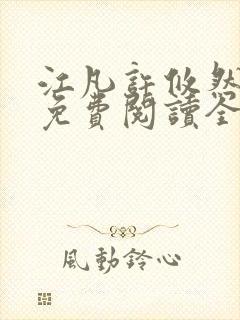 江凡許攸然
免費閱讀全
風動鈴心